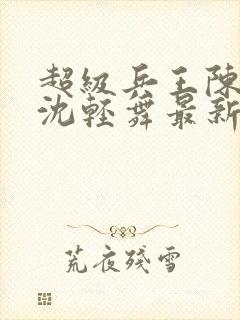 超級兵王陳
沈輕舞最新
荒夜殘雪